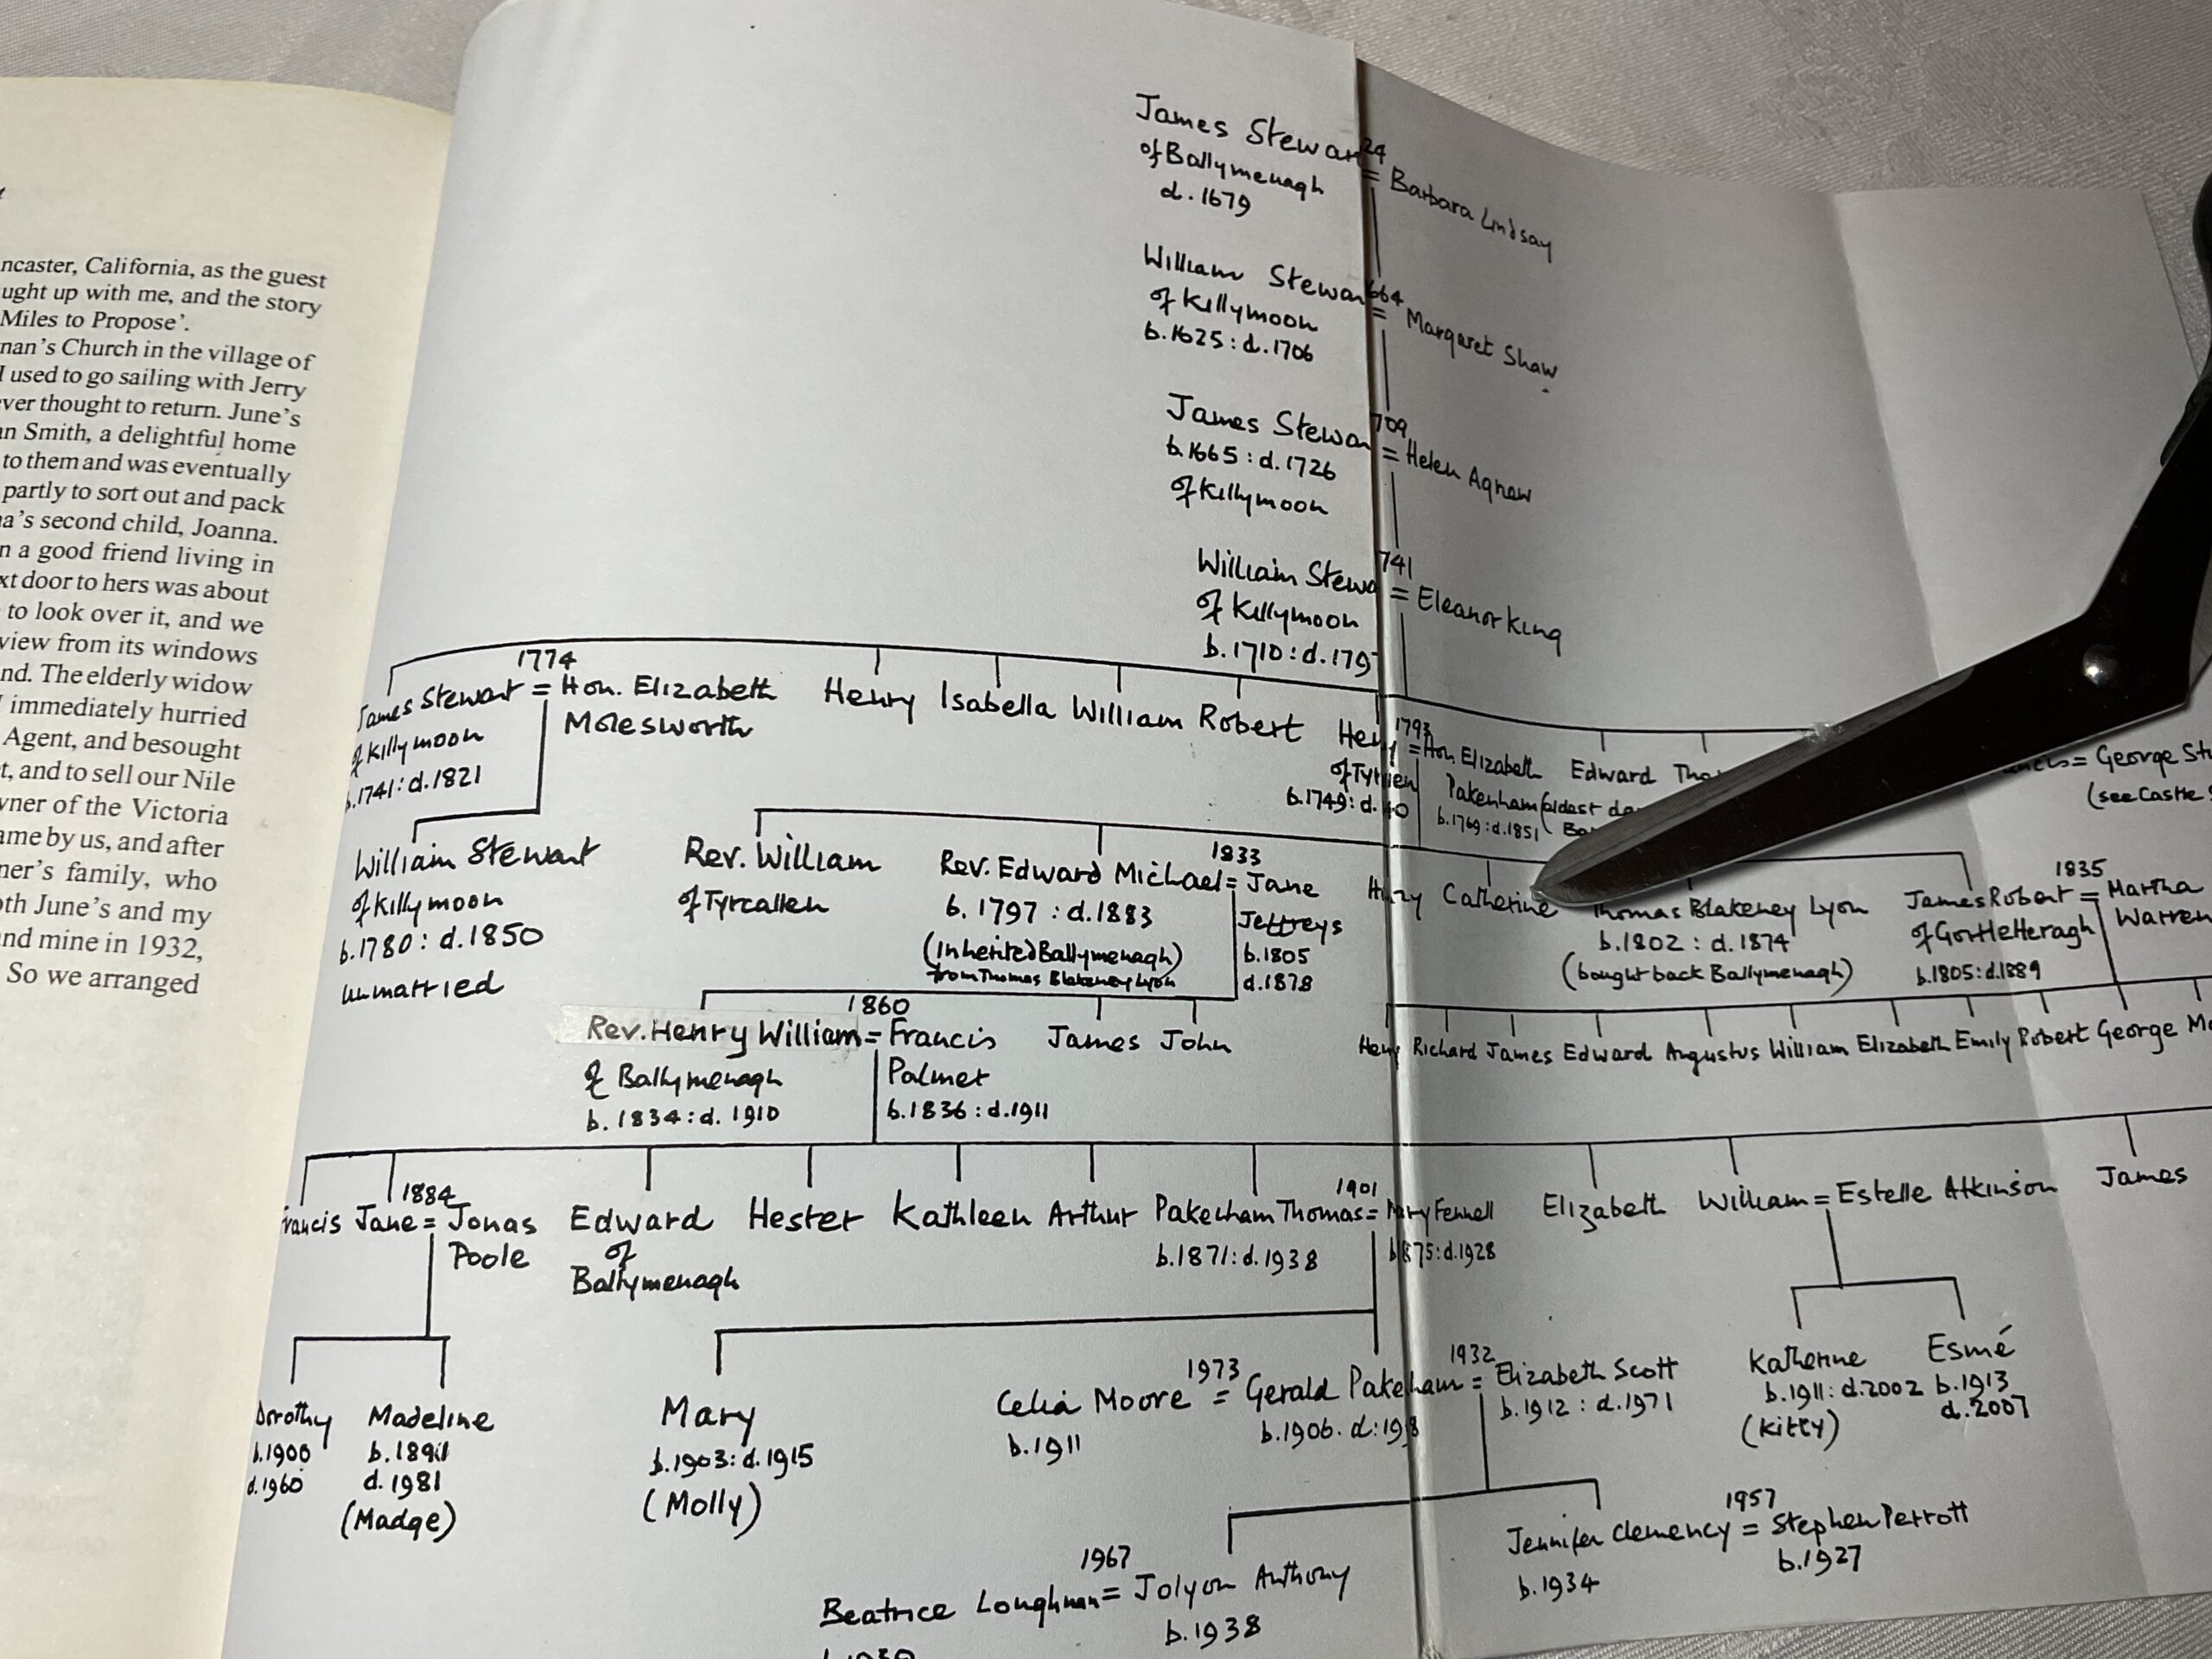 ncaster, California, as the guest
ught up with me, and the story
Miles to Propose'.
nan's Church in the village of
I used to go sailing with Jerry
ver thought to return. June's
an Smith, a delightful home
to them and was eventually
partly to sort out and pack
na's second child, Joanna.
n a good friend living in
xt door to hers was about
to look over it, and we
view from its windows
nd. The elderly widow
I immediately hurried
Agent, and besought
t, and to sell our Nile
wner of the Victoria
ame by us, and after
ner's family, who
oth June's and my
and mine in 1932,
So we arranged
James Stewar 24 = Barbara Lindsay
of Ballymenagh
d. 1679
William Stewar 664 = Margaret Shaw
of Killymoon
b. 1625 : d. 1706
James Stewar 709 = Helen Agnew
b. 1665 : d. 1726
of Killymoon
William Stewa 741 = Eleanor King
of Killymoon
b. 1710 : d. 179
1774
James Stewart = Hon. Elizabeth Henry Isabella William Robert Henry 1793 = Hon. Elizabeth Edward Tho ncis = George Stu
of Killymoon Molesworth of Tyr Pakenham (eldest da (see Castle S
b. 1741 : d. 1821 b. 1749 : d. 40 b. 1769 : d. 1851 Ba
William Stewart Rev. William Rev. Edward Michael 1833 = Jane Henry Catherine Thomas Blakeney Lyon James Robert 1835 = Martha
of Killymoon of Tyrcallen b. 1797 : d. 1883 Jeffreys b. 1802 : d. 1874 of Gortletteragh Warren
b. 1780 : d. 1850 (Inherited Ballymenagh) b. 1805 (bought back Ballymenagh) b. 1805 : d. 1889
unmarried from Thomas Blakeney Lyon d. 1878
1860
Rev. Henry William = Francis James John Henry Richard James Edward Augustus William Elizabeth Emily Robert George
of Ballymenagh Palmer
b. 1834 : d. 1910 b. 1836 : d. 1911
1884 1901
Francis Jane = Jonas Edward Hester Kathleen Arthur Pakenham Thomas = Mary Fennell Elizabeth William = Estelle Atkinson James
Poole of b. 1871 : d. 1938 b. 1875 : d. 1928
Ballymenagh
1973 1932
Dorothy Madeline Mary Celia Moore = Gerald Pakenham = Elizabeth Scott Katherine Esmé
b. 1900 b. 1903 : d. 1915 b. 1911 b. 1906. d : 198 b. 1912 : d. 1971 b. 1911 : d. 2002 b. 1913
d. 1960 d. 1981 (Molly) (Kitty) d. 2007
(Madge)
1957
Jennifer Clemency = Stephen Perrott
b. 1934 b. 1927
1967
Beatrice Loughnan = Jolyon Anthony
b. 1938